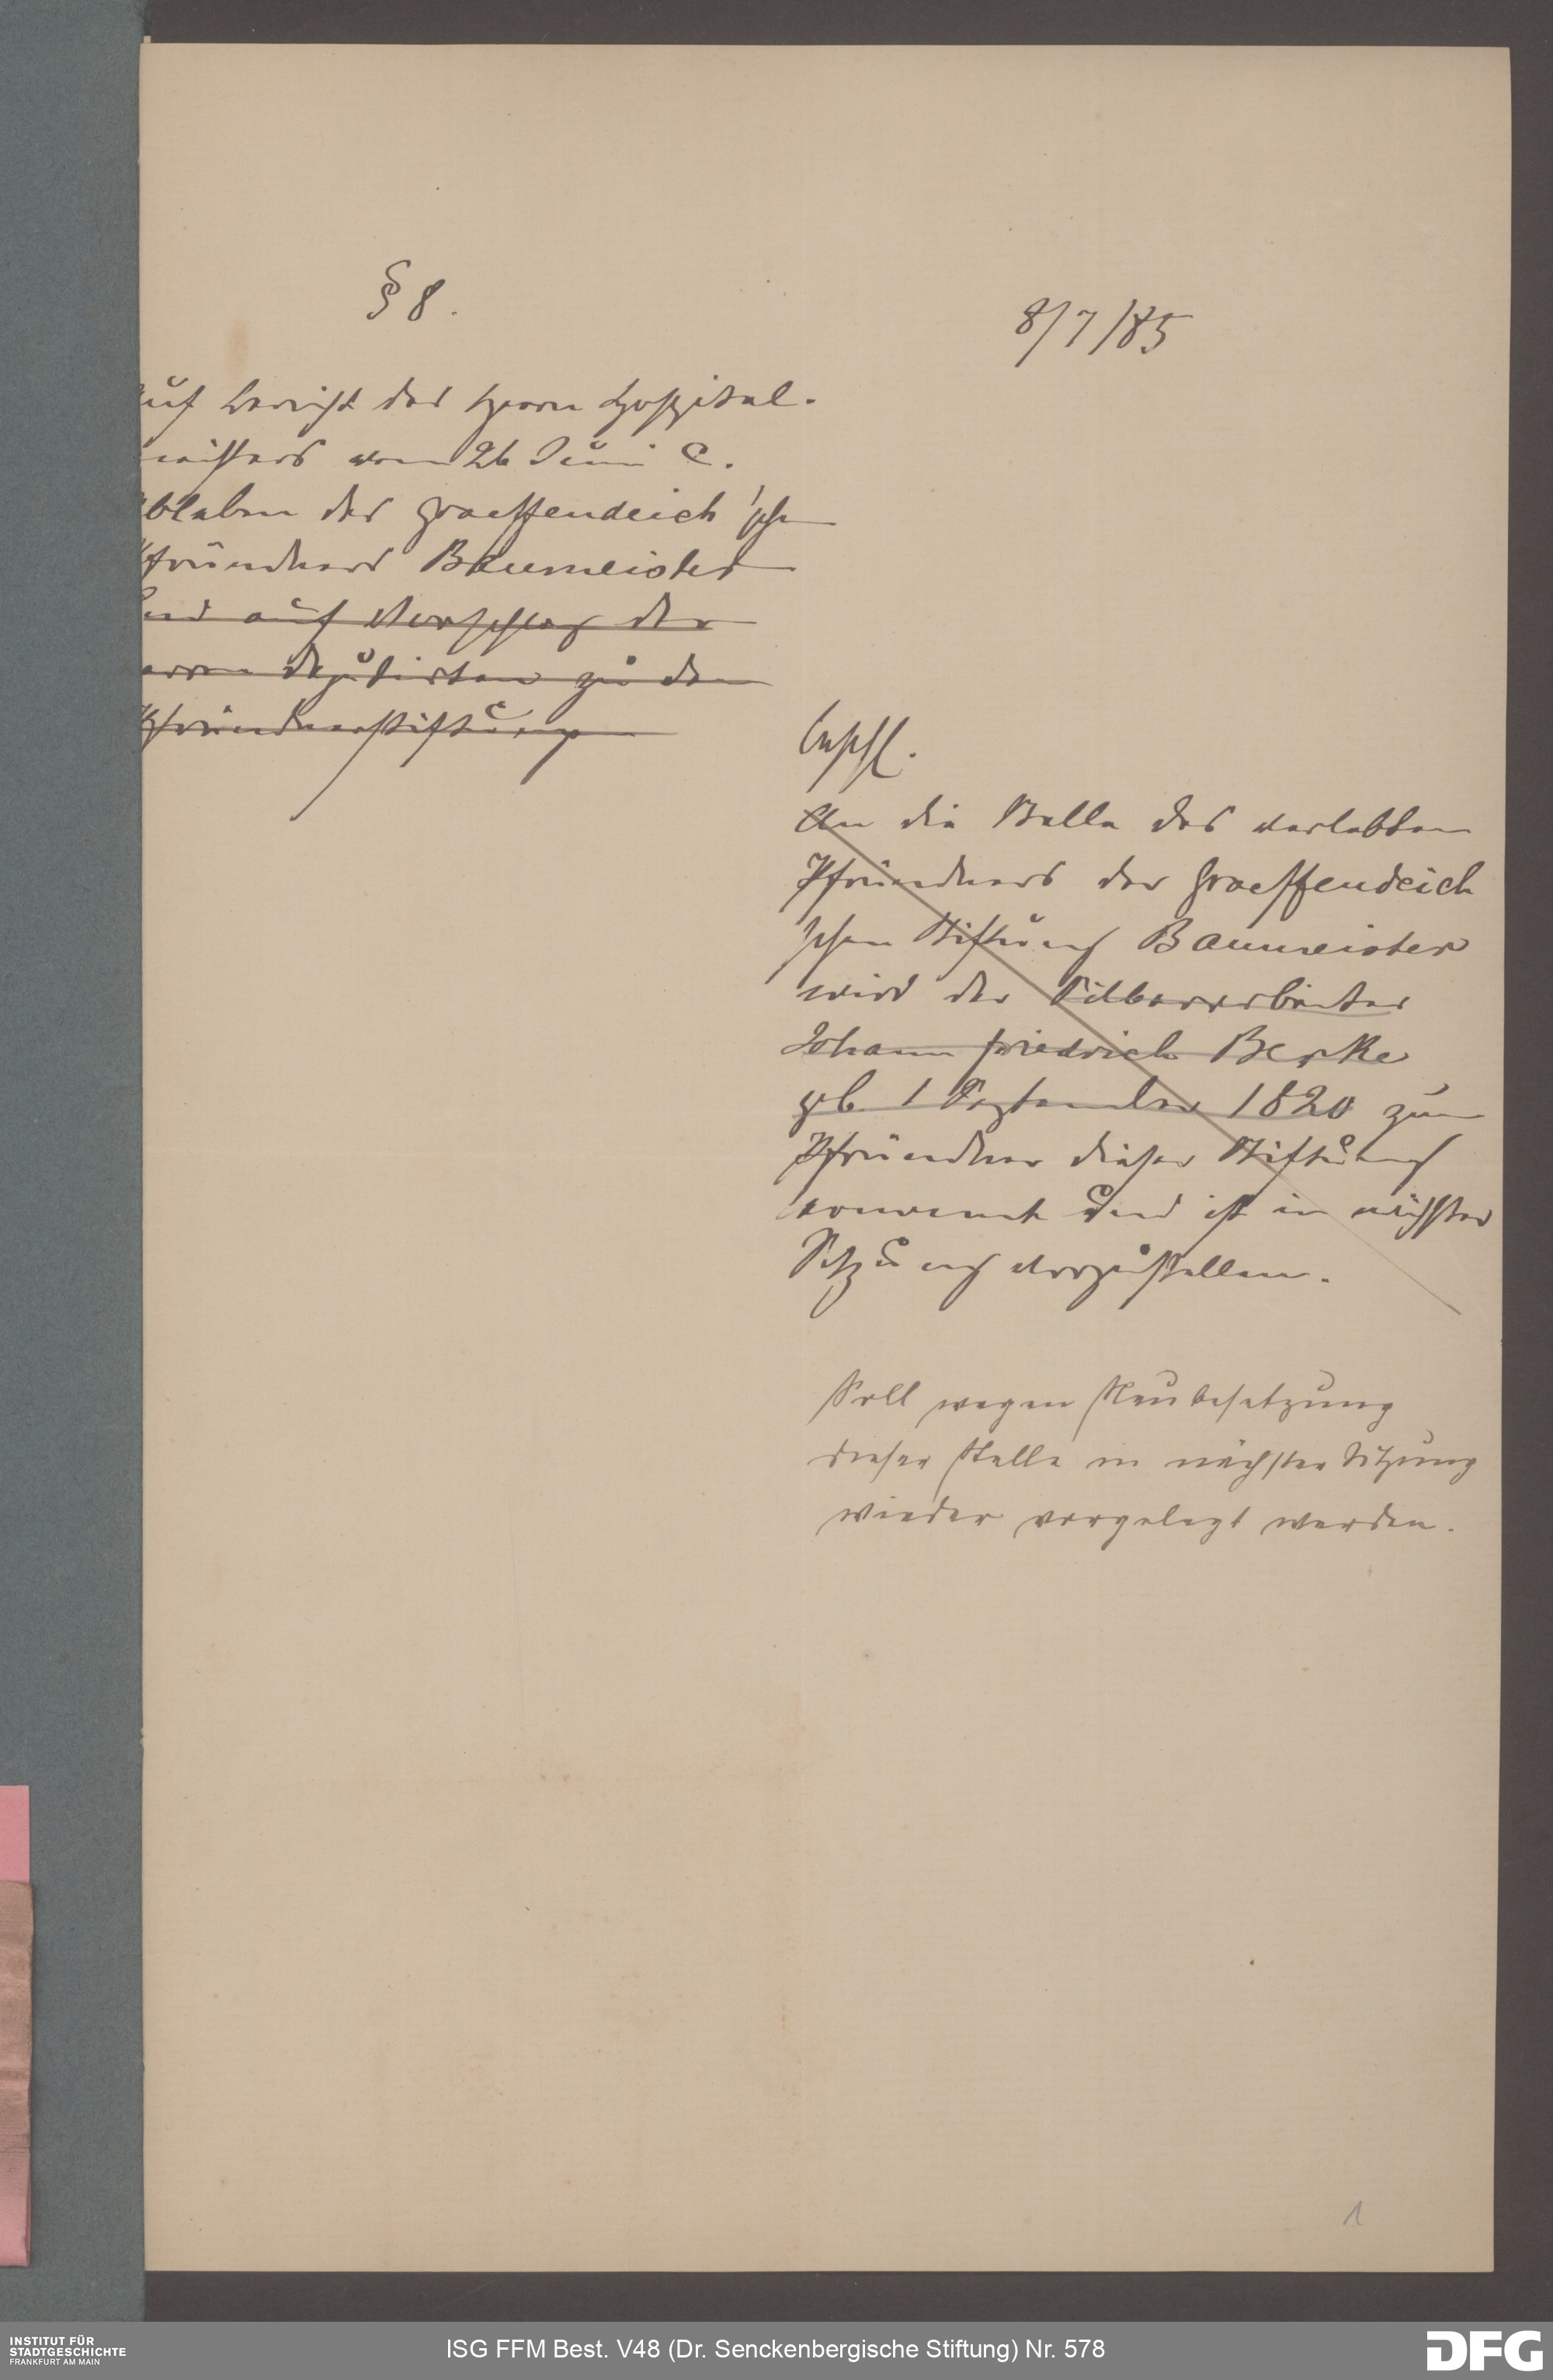 § 8.
8/7/85
auf Bericht des Herrn Hospital-
meisters vom 26 Juni c.
Ableben des Graeffendeich'schen
Pfründners Baumeister
und auf Vorschlag der
Herren Deputirten zu den
Pfründnerstiftungen
Beschl.
An die Stelle des verlebten
Pfründners der Graeffendeich
schen Stiftung Baumeister
wird der Silberarbeiter
Johann Friedrich Berke
gb. 1 September 1820 zum
Pfründner dieser Stiftung
ernannt und ist in nächster
Sitzung vorzustellen.
Soll wegen Neubesetzung
dieser Stelle in nächster Sitzung
wieder vorgelegt werden.
1
INSTITUT FÜR
STADTGESCHICHTE
FRANKFURT AM MAIN
ISG FFM Best. V48 (Dr. Senckenbergische Stiftung) Nr. 578
DFG